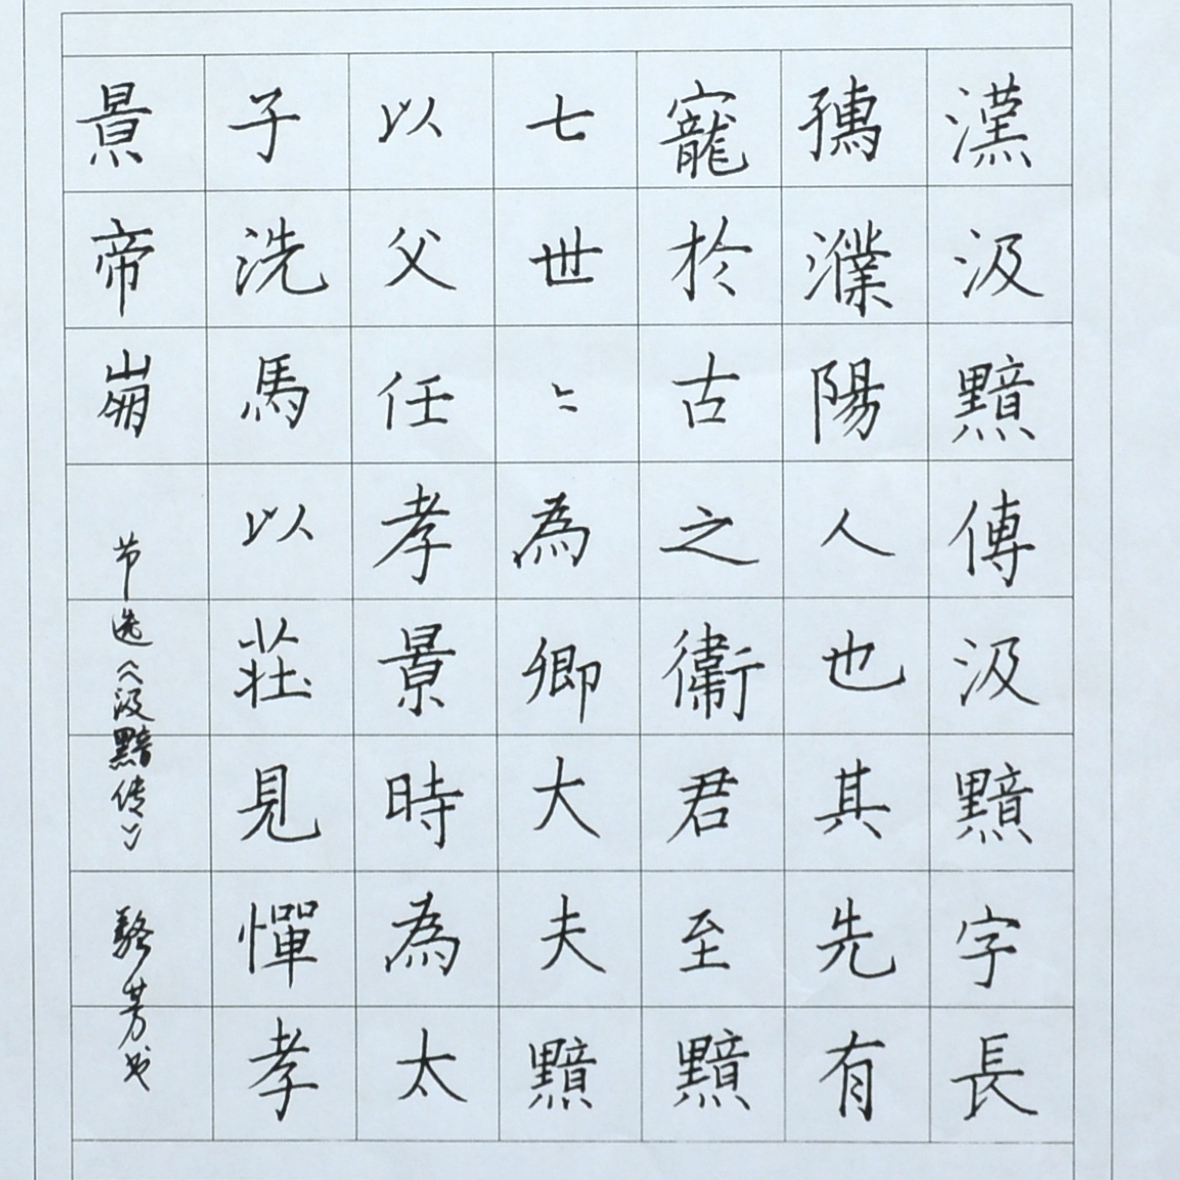 漢汲黯傳汲黯字長
孺濮陽人也其先有
寵於古之衛君至黯
七世〻為卿大夫黯
以父任孝景時為太
子洗馬以莊見憚孝
景帝崩
节选《汲黯传》
芳书